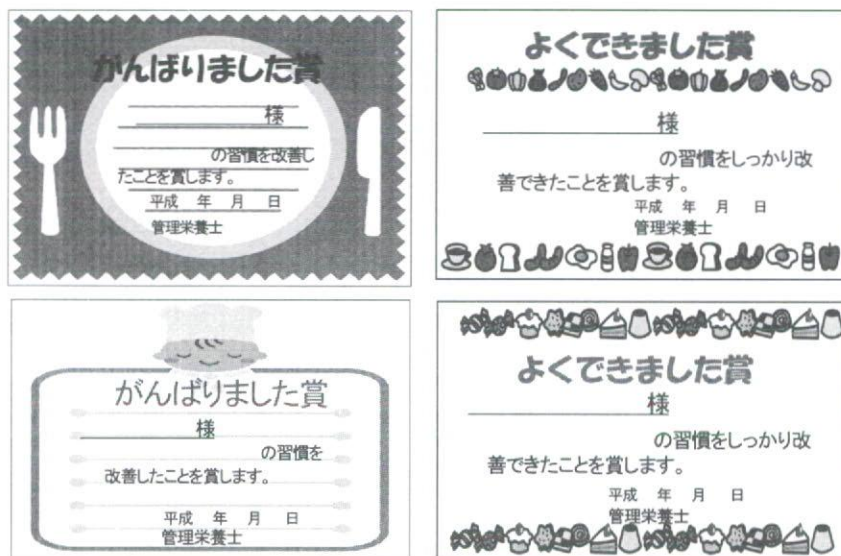 がんばりました賞
様
の習慣を改善し
たことを賞します。
平成 年 月 日
管理栄養士
よくできました賞
様
の習慣をしっかり改
善できたことを賞します。
平成 年 月 日
管理栄養士
がんばりました賞
様
の習慣を
改善したことを賞します。
平成 年 月 日
管理栄養士
よくできました賞
様
の習慣をしっかり改
善できたことを賞します。
平成 年 月 日
管理栄養士